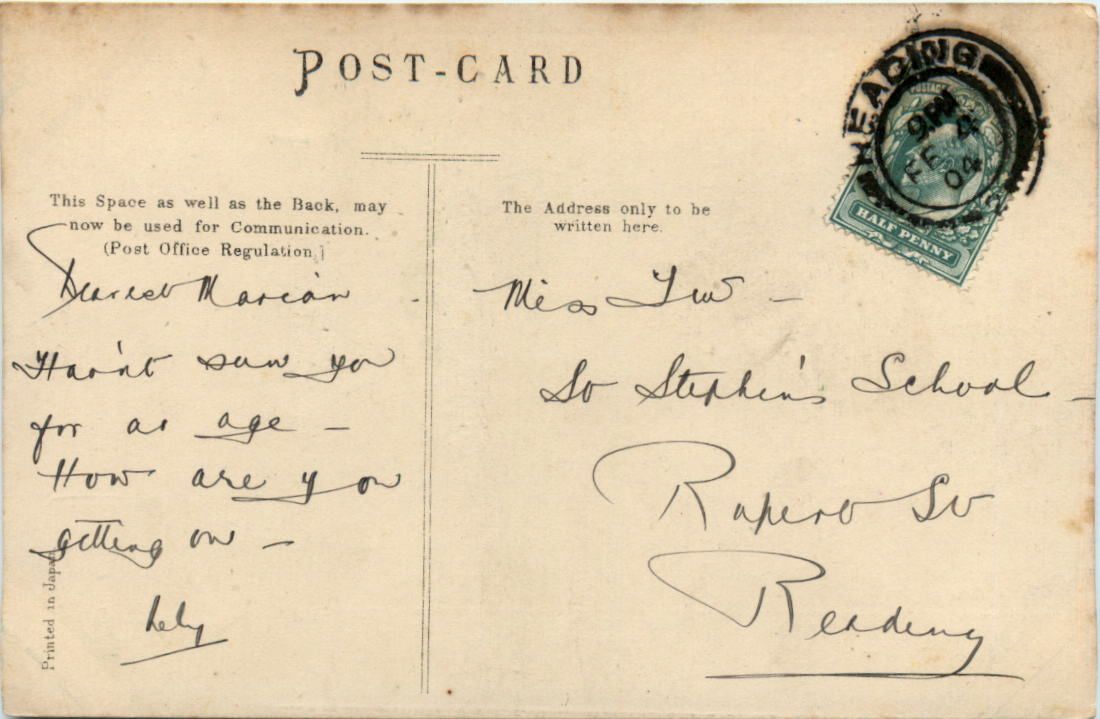 POST-CARD
READING
9 PM
FE 4
04
POSTAGE
HALF PENNY
This Space as well as the Back, may
now be used for Communication.
(Post Office Regulation.)
The Address only to be
written here.
Dearest Marian
Hav'nt seen you
for an age –
How are you
getting on –
Printed in Japan
Miss
St Stephen's School –
Rupert St
Reading